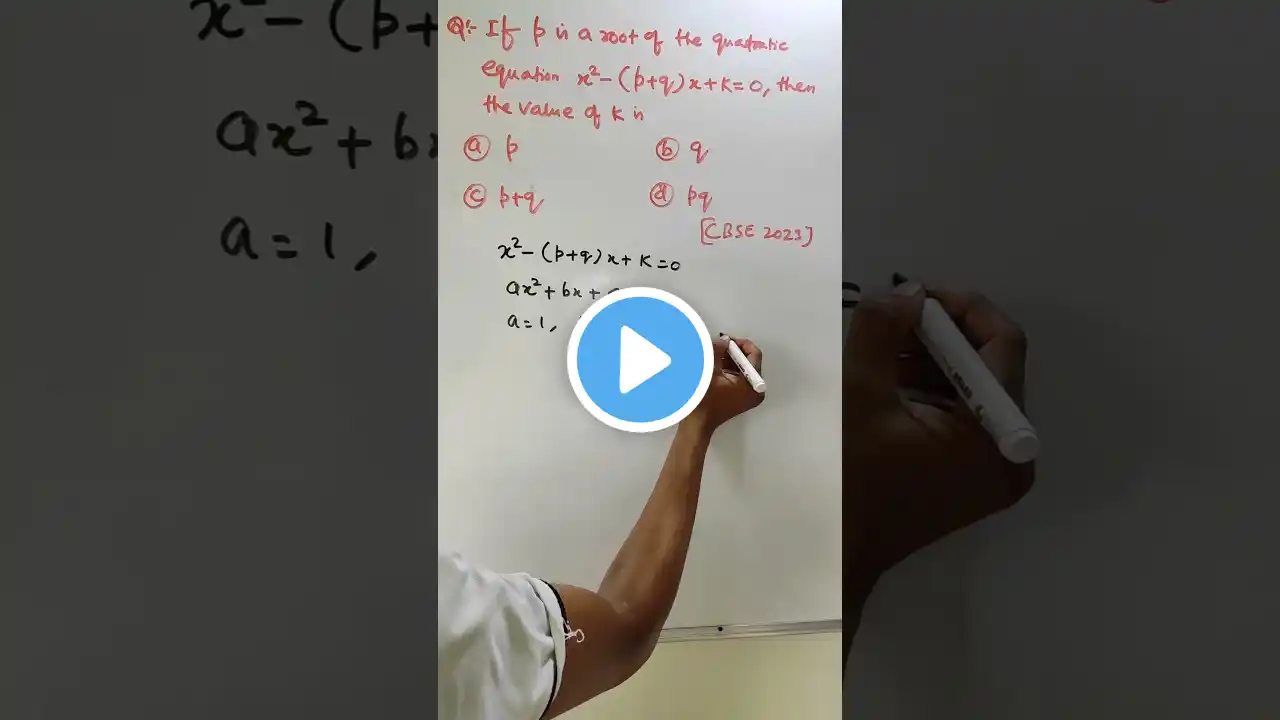 Q:- If p is a root of the quadratic
equation x² – (p+q)x + k = 0, then
the value of k is
(a) p (b) q
(c) p+q (d) pq
[CBSE 2023]
x² – (p+q)x + k = 0
ax² + bx +
a = 1,
x² – (p+
ax² + bx
a = 1,